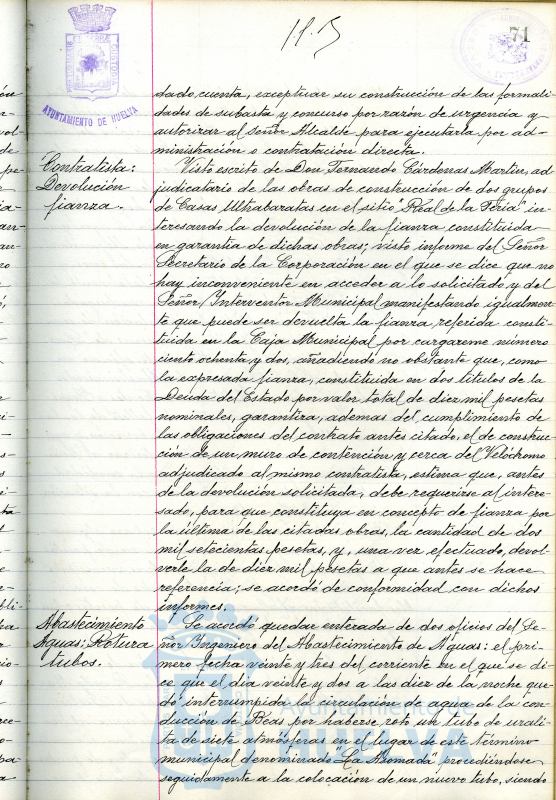 71
AYUNTAMIENTO DE HUELVA
dado cuenta, exceptuar su construcción de las formali-
dades de subasta y concurso por razón de urgencia y
autorizar al Señor Alcalde para ejecutarla por ad-
ministración o contratación directa.
Contratista:
Devolución
fianza.
Visto escrito de Don Fernando Cárdenas Martín, ad-
judicatario de las obras de construcción de dos grupos
de Casas Ultrabaratas en el sitio "Real de la Feria" in-
teresando la devolución de la fianza constituida
en garantía de dichas obras; visto informe del Señor
Secretario de la Corporación en el que se dice que no
hay inconveniente en acceder a lo solicitado y del
Señor Interventor Municipal manifestando igualmen-
te que puede ser devuelta la fianza, referida consti-
tuida en la Caja Municipal por cargareme número
ciento ochenta y dos, añadiendo no obstante que, como
la expresada fianza, constituida en dos títulos de la
Deuda del Estado por valor total de diez mil pesetas
nominales, garantiza, además del cumplimiento de
las obligaciones del contrato antes citado, el de construc-
ción de un muro de contención y cerca del Velódromo
adjudicado al mismo contratista, estima que, antes
de la devolución solicitada, debe requerirse al intere-
sado, para que constituya en concepto de fianza por
la última de las citadas obras, la cantidad de dos
mil setecientas pesetas, y, una vez efectuado, devol-
verle la de diez mil pesetas a que antes se hace
referencia; se acordó de conformidad con dichos
informes.
Abastecimiento
Aguas: Rotura
tubos.
Se acordó quedar enterada de dos oficios del Se-
ñor Ingeniero del Abastecimiento de Aguas: el pri-
mero fecha veinte y tres del corriente en el que se di-
ce que el día veinte y dos a las diez de la noche que-
dó interrumpida la circulación de agua de la con-
ducción de Beas por haberse roto un tubo de urali-
ta de siete atmósferas en el lugar de este término
municipal denominado "La Asomada" procediéndose
seguidamente a la colocación de un nuevo tubo, siendo
Ayuntamiento de
HUELVA